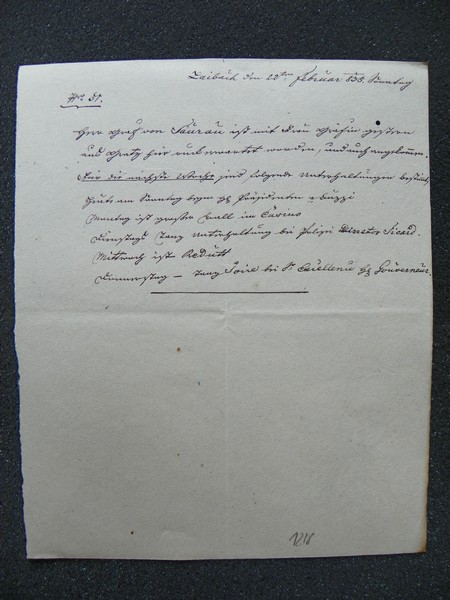 Laibach den 22ten Februar 835. Sonntag
No 51.
Herr Graf von Saurau ist mit Frau Gräfin gestern
aus Gratz hier unerwartet worden, und auch angekommen.
Für die nächste Woche sind folgende Unterhaltungen bestimmt
Heute am Sonntag beym H Präsidenten v Buzzi
Montag ist großer Ball im Casino
Dienstags Tanz Unterhaltung bei Polizei Director Sicard.
Mittwoch ist Redutt
Donnerstag – Tanz Soire bei Sr Excellenz H Gouverneur.
1218